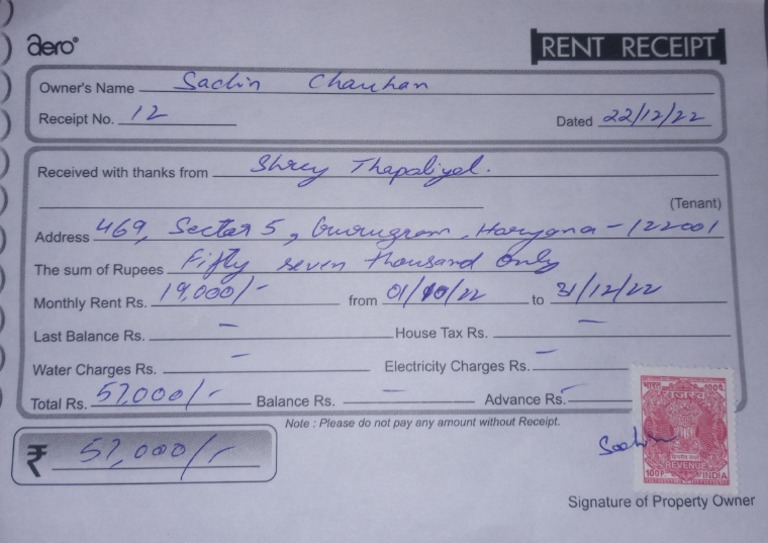 aero®
RENT RECEIPT
Owner's Name Sachin Chauhan
Receipt No. 12 Dated 22/12/22
Received with thanks from Shrey Thapaliyal.
(Tenant)
Address 469, Sector 5, Gurugram, Haryana - 122001
The sum of Rupees Fifty seven thousand only
Monthly Rent Rs. 19,000/- from 01/10/22 to 31/12/22
Last Balance Rs. - House Tax Rs. -
Water Charges Rs. - Electricity Charges Rs. -
Total Rs. 57,000/- Balance Rs. - Advance Rs. -
Note : Please do not pay any amount without Receipt.
₹ 57,000/-
Sachin
भारत 100प
REVENUE
100P INDIA
Signature of Property Owner